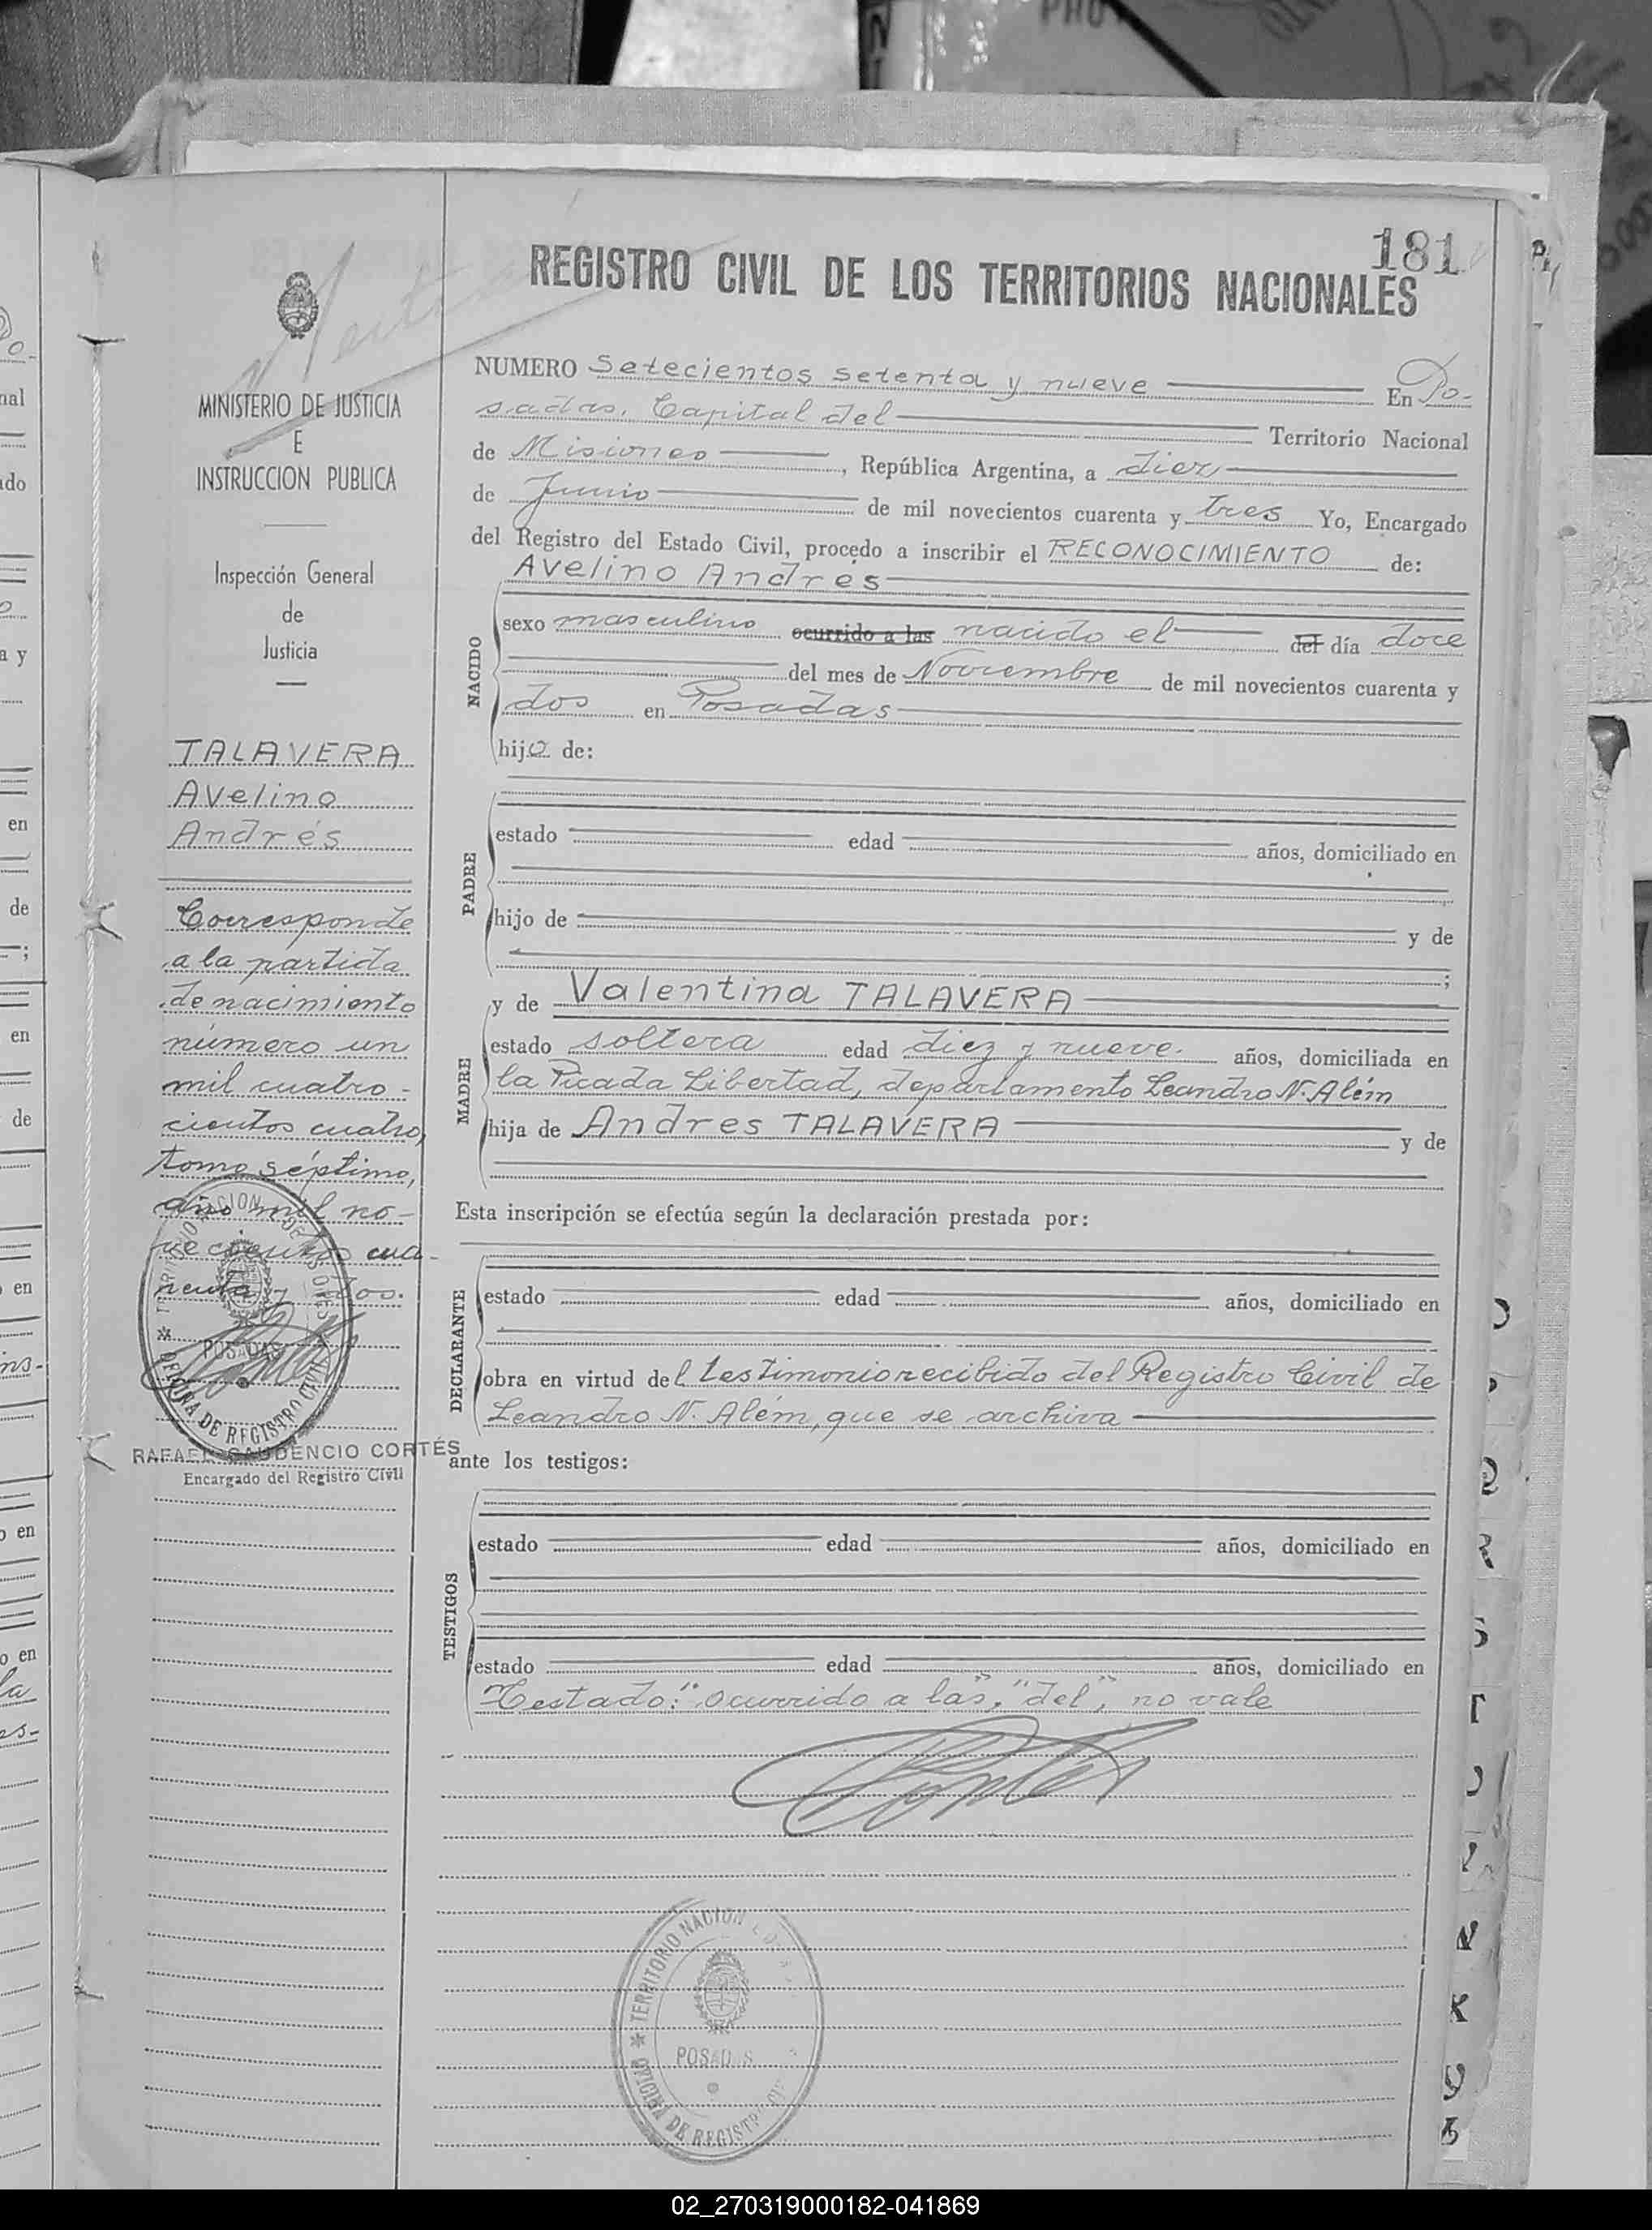 181
REGISTRO CIVIL DE LOS TERRITORIOS NACIONALES
MINISTERIO DE JUSTICIA
E
INSTRUCCION PUBLICA
Inspección General
de
Justicia
TALAVERA
Avelino
Andrés
Corresponde
a la partida
de nacimiento
número un
mil cuatro-
cientos cuatro,
tomo séptimo,
año mil no-
vecientos cua-
renta y dos.
POSADAS
OFICINA DE REGISTRO CIVIL
RAFAEL GAUDENCIO CORTÉS
Encargado del Registro Civil
NUMERO Setecientos setenta y nueve En Po-
sadas, Capital del Territorio Nacional
de Misiones, República Argentina, a diez
de Junio de mil novecientos cuarenta y tres Yo, Encargado
del Registro del Estado Civil, procedo a inscribir el RECONOCIMIENTO de:
Avelino Andrés
NACIDO
sexo masculino ocurrido a las nacido el del día doce
del mes de Noviembre de mil novecientos cuarenta y
dos en Posadas
hijo de:
PADRE
estado edad años, domiciliado en
hijo de y de
;
MADRE
y de Valentina TALAVERA
estado soltera edad diez y nueve. años, domiciliada en
la Picada Libertad, departamento Leandro N. Além
hija de Andres TALAVERA y de
Esta inscripción se efectúa según la declaración prestada por:
DECLARANTE
estado edad años, domiciliado en
obra en virtud del testimonio recibido del Registro Civil de
Leandro N. Além, que se archiva
ante los testigos:
TESTIGOS
estado edad años, domiciliado en
estado edad años, domiciliado en
Testado: "ocurrido a las", "del", no vale
TERRITORIO NACIONAL
POSADAS
OFICINA DE REGISTRO
02_270319000182-041869